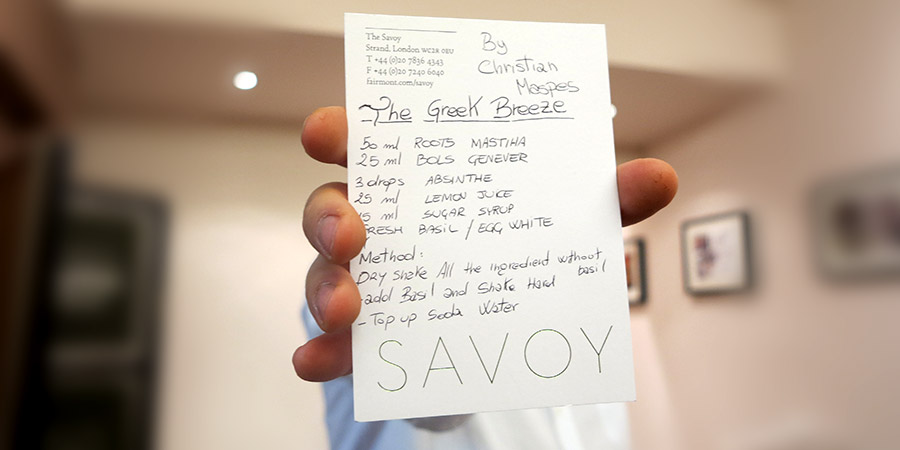 The Savoy
Strand, London WC2R 0EU
T +44 (0)20 7836 4343
F +44 (0)20 7240 6040
fairmont.com/savoy
By
Christian
Maspes
The Greek Breeze
50 ml ROOTS MASTIHA
25 ml BOLS GENEVER
3 drops ABSINTHE
25 ml LEMON JUICE
15 ml SUGAR SYRUP
FRESH BASIL / EGG WHITE
Method:
DRY Shake All the ingredient without basil
- add Basil and Shake Hard
- Top up Soda Water
SAVOY